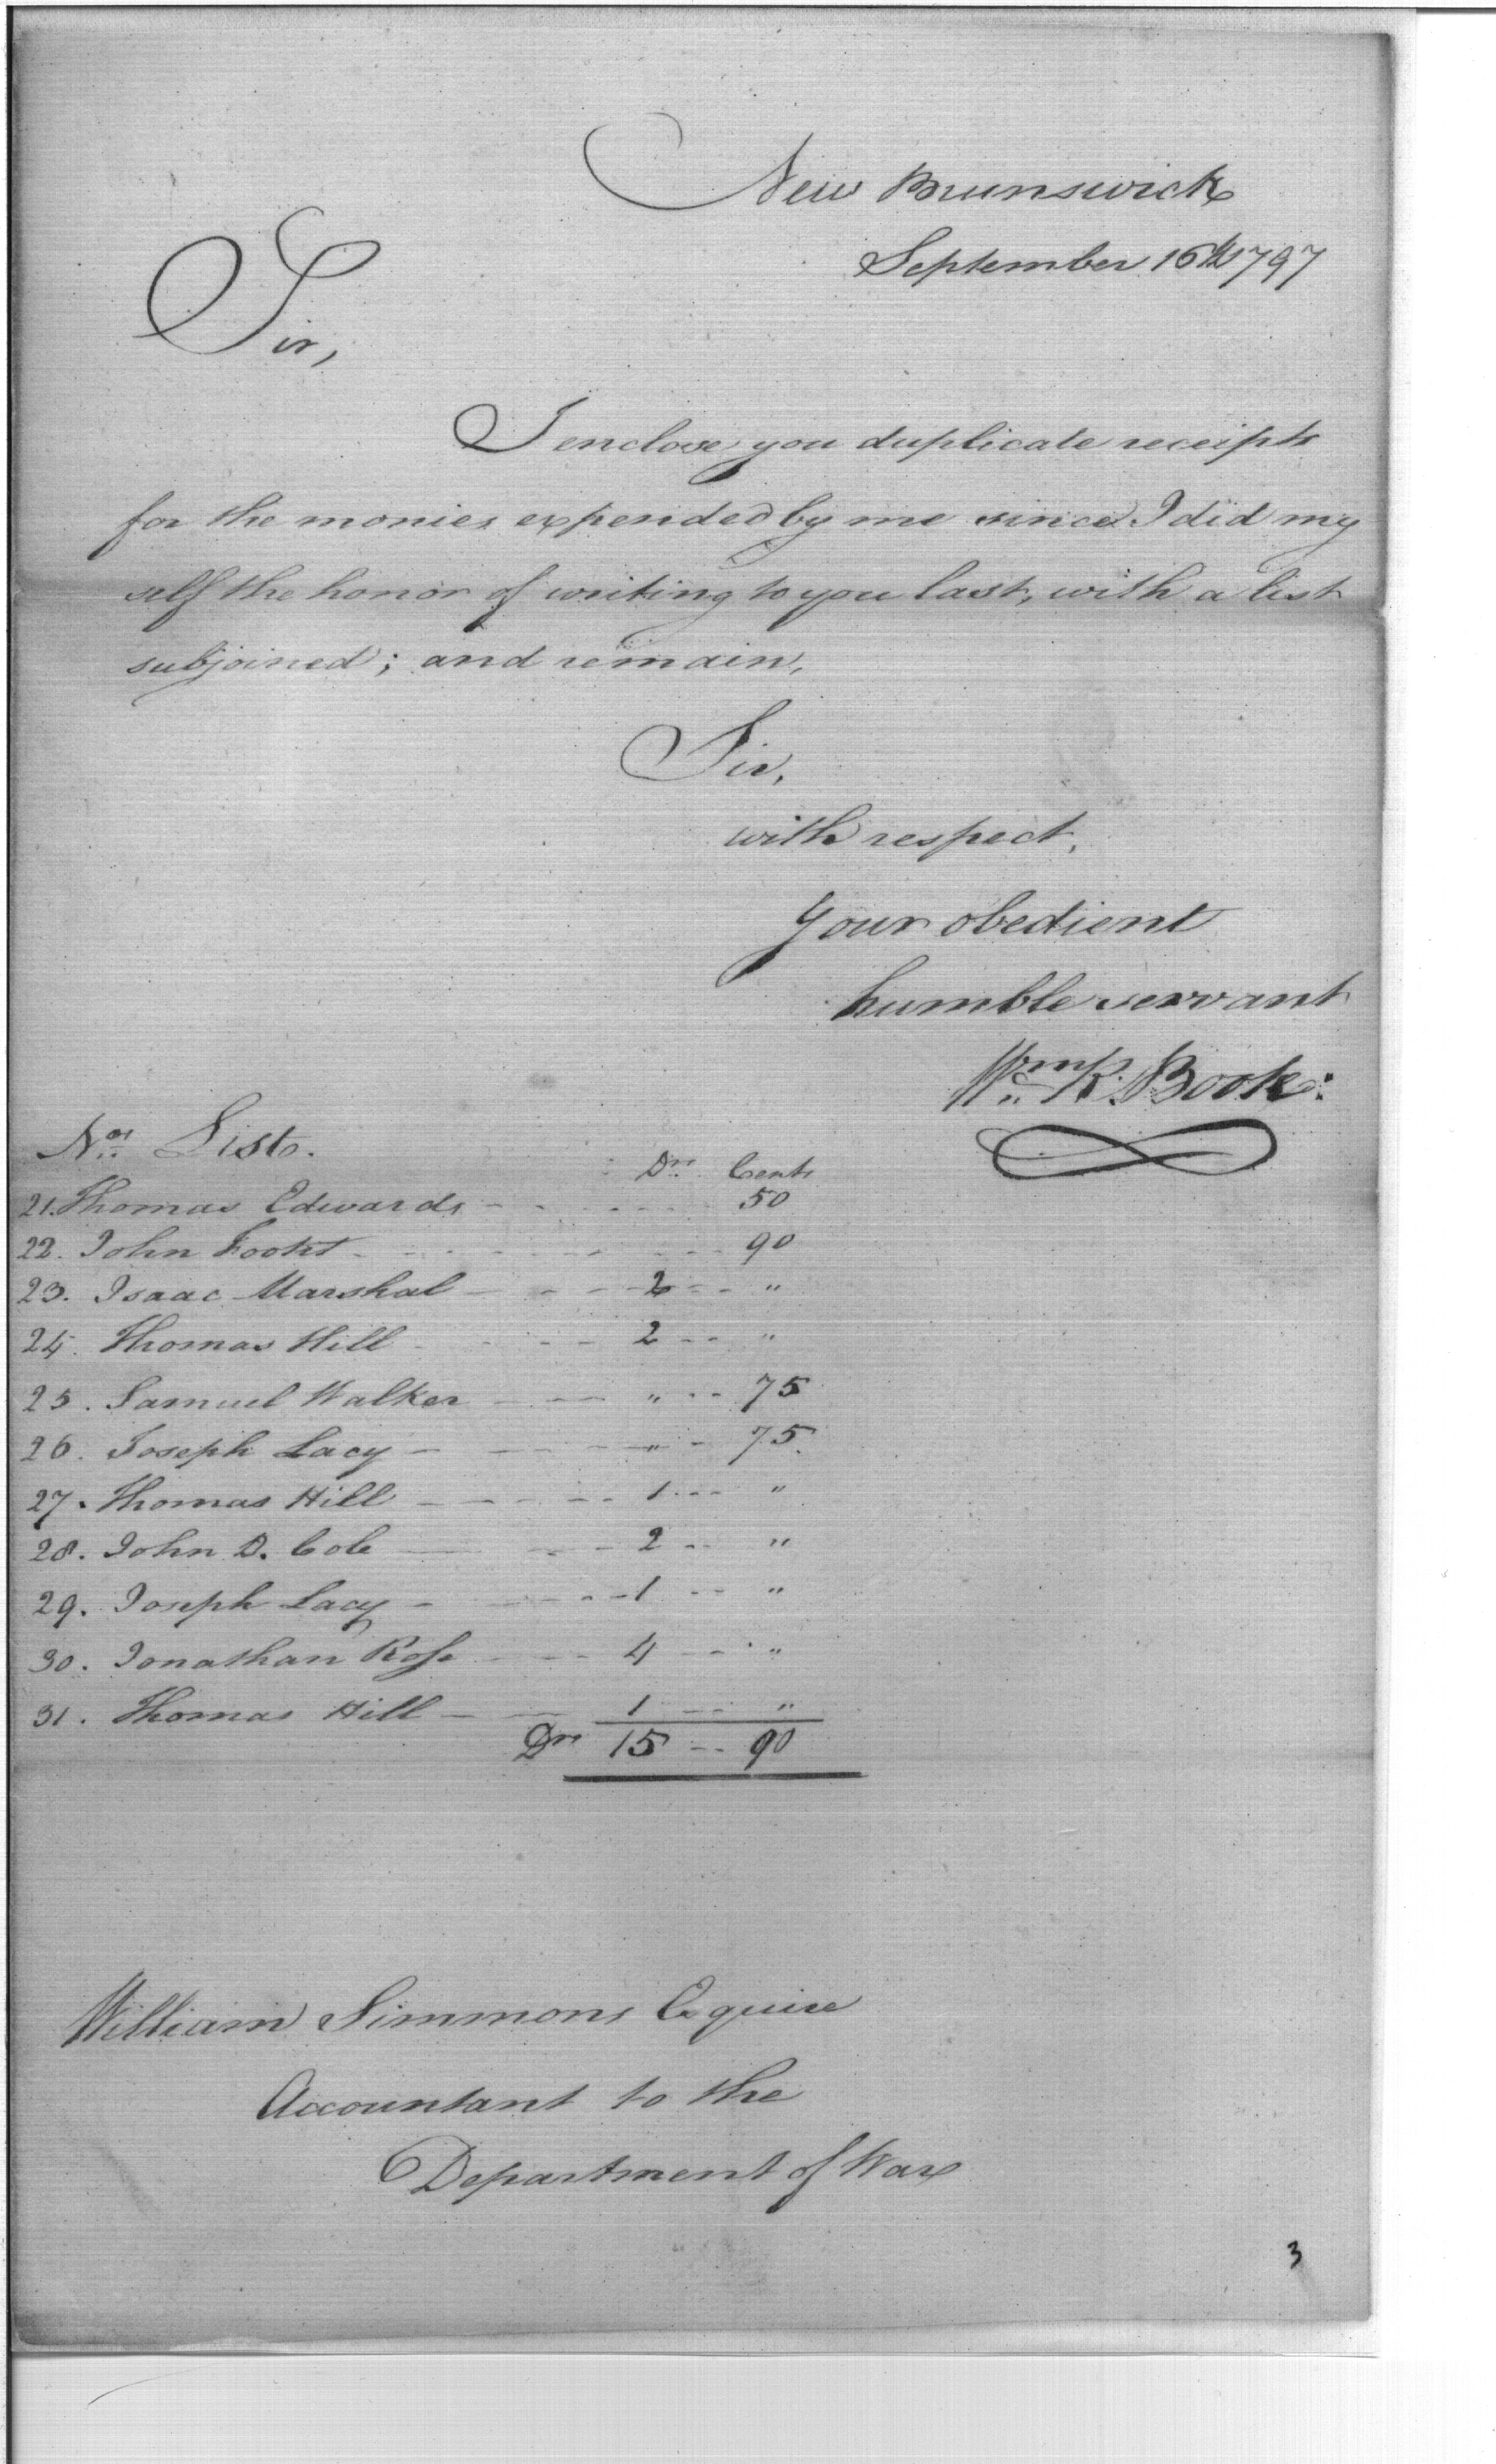 New Brunswick
September 16th 1797
Sir,
I enclose you duplicate receipts
for the monies expended by me since I did my
self the honor of writing to you last, with a list
subjoined; and remain,
Sir,
with respect,
Your obedient
humble servant
Wm. R. Boote:
Nos. List.
Drs. Cents
21. Thomas Edwards - - 50
22. John Foott - - 90
23. Isaac Marshal - - 2 - - "
24. Thomas Hill - - 2 - - "
25. Samuel Walker - - " - - 75
26. Joseph Lacy - - " - 75
27. Thomas Hill - - 1 - - "
28. John D. Cole - - 2 - - "
29. Joseph Lacy - - 1 - - "
30. Jonathan Rose - - 4 - - "
31. Thomas Hill - - 1 - - "
Drs 15 - - 90
William Simmons Esquire
Accountant to the
Department of War
3